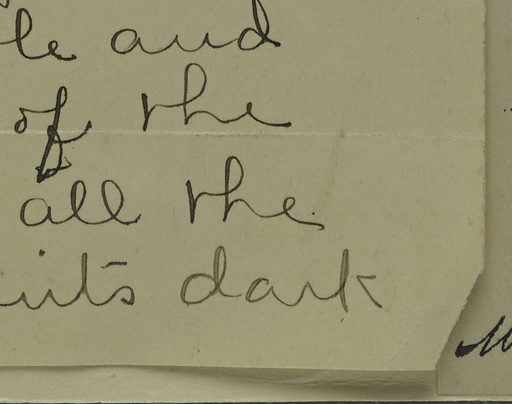 le and
of the
all the
its dark